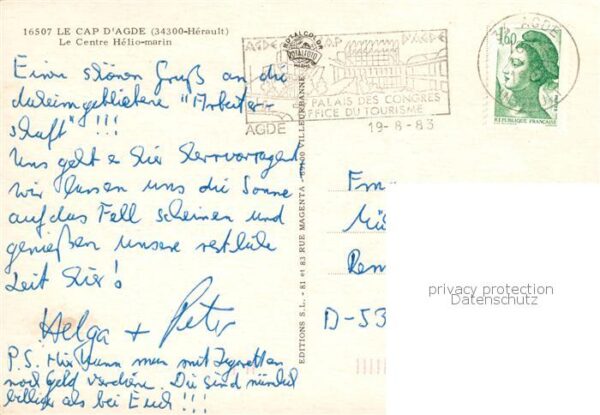 16507 LE CAP D'AGDE (34300-Hérault)
Le Centre Hélio-marin
Einen schönen Gruß an die
daheimgebliebene "Arbeiter-
schaft" !!!
Uns geht es hier hervorragend
wir lassen uns die Sonne
auf das Fell scheinen und
genießen unsere restliche
Zeit hier!
Helga + Peter
P.S. Hier kann man mit Zigaretten
noch Geld verdienen. Die sind nämlich
billiger als bei Euch!!!
EDITIONS S.L. - 81 et 83 RUE MAGENTA - 69100 VILLEURBANNE
ROYALCOLOR
AGDE CAP D'AGDE
PALAIS DES CONGRES
OFFICE DU TOURISME
AGDE
19-8-83
AGDE
1,60
REPUBLIQUE FRANÇAISE
D-53
privacy protection
Datenschutz